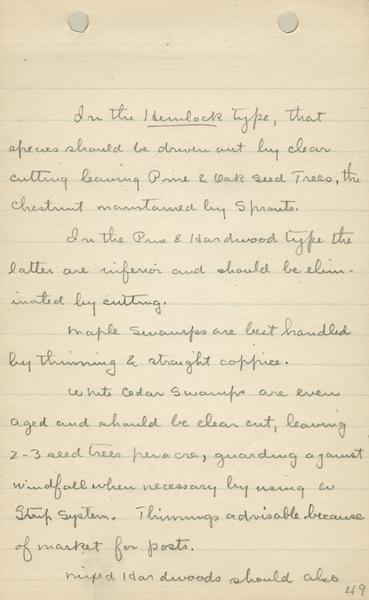 In the Hemlock type, that
species should be driven out by clear
cutting leaving Pine & Oak Seed Trees, the
chestnut maintained by Sprouts.
In the Pine & Hardwood type the
latter are inferior and should be elim-
inated by cutting.
Maple Swamps are best handled
by thinning & straight coppice.
White Cedar Swamps are even
aged and should be clear cut, leaving
2-3 seed trees per acre, guarding against
windfall when necessary by using a
Strip System. Thinnings advisable because
of market for posts.
Mixed Hardwoods should also
49